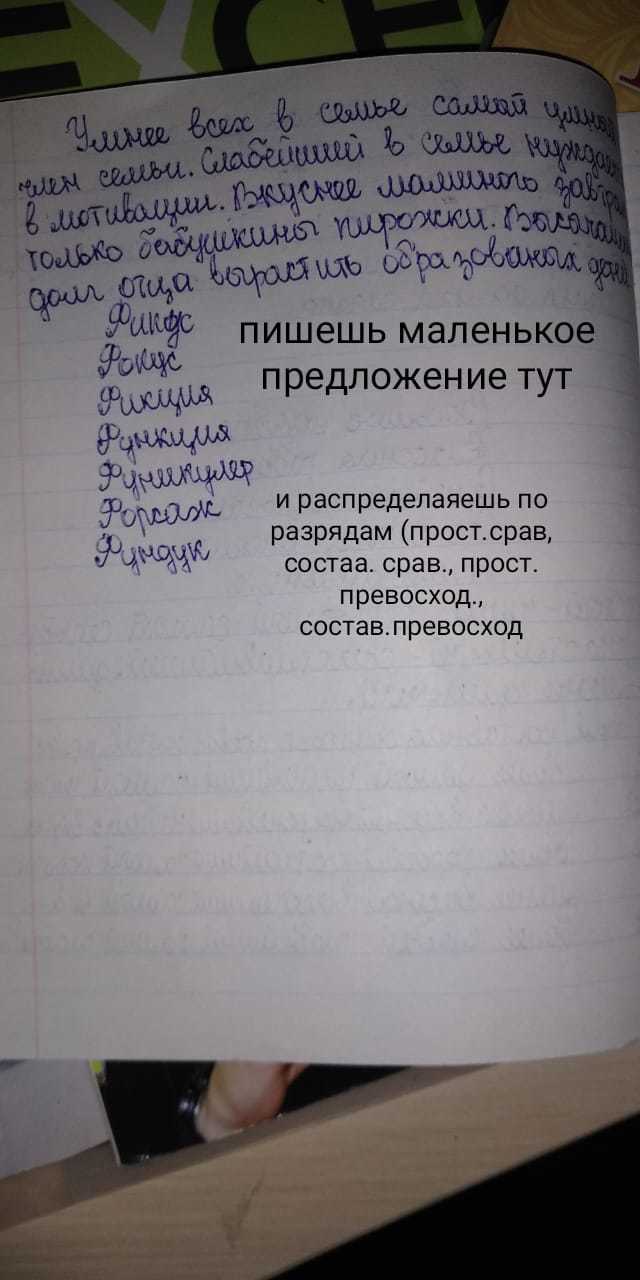 EXCE
Умнее всех в семье самой умной
член семьи. Слабейшей в семье нуждает
в мотивации. Вкуснее маминого завтрак
только бабушкины пирожки. Высочайш
долг отца вырастить образованых дет
Фикус
Фокус
Фикция
Функция
Фуникулер
Форсаж
Фундук
пишешь маленькое
предложение тут
и распределаяешь по
разрядам (прост.срав,
состаа. срав., прост.
превосход.,
состав.превосход